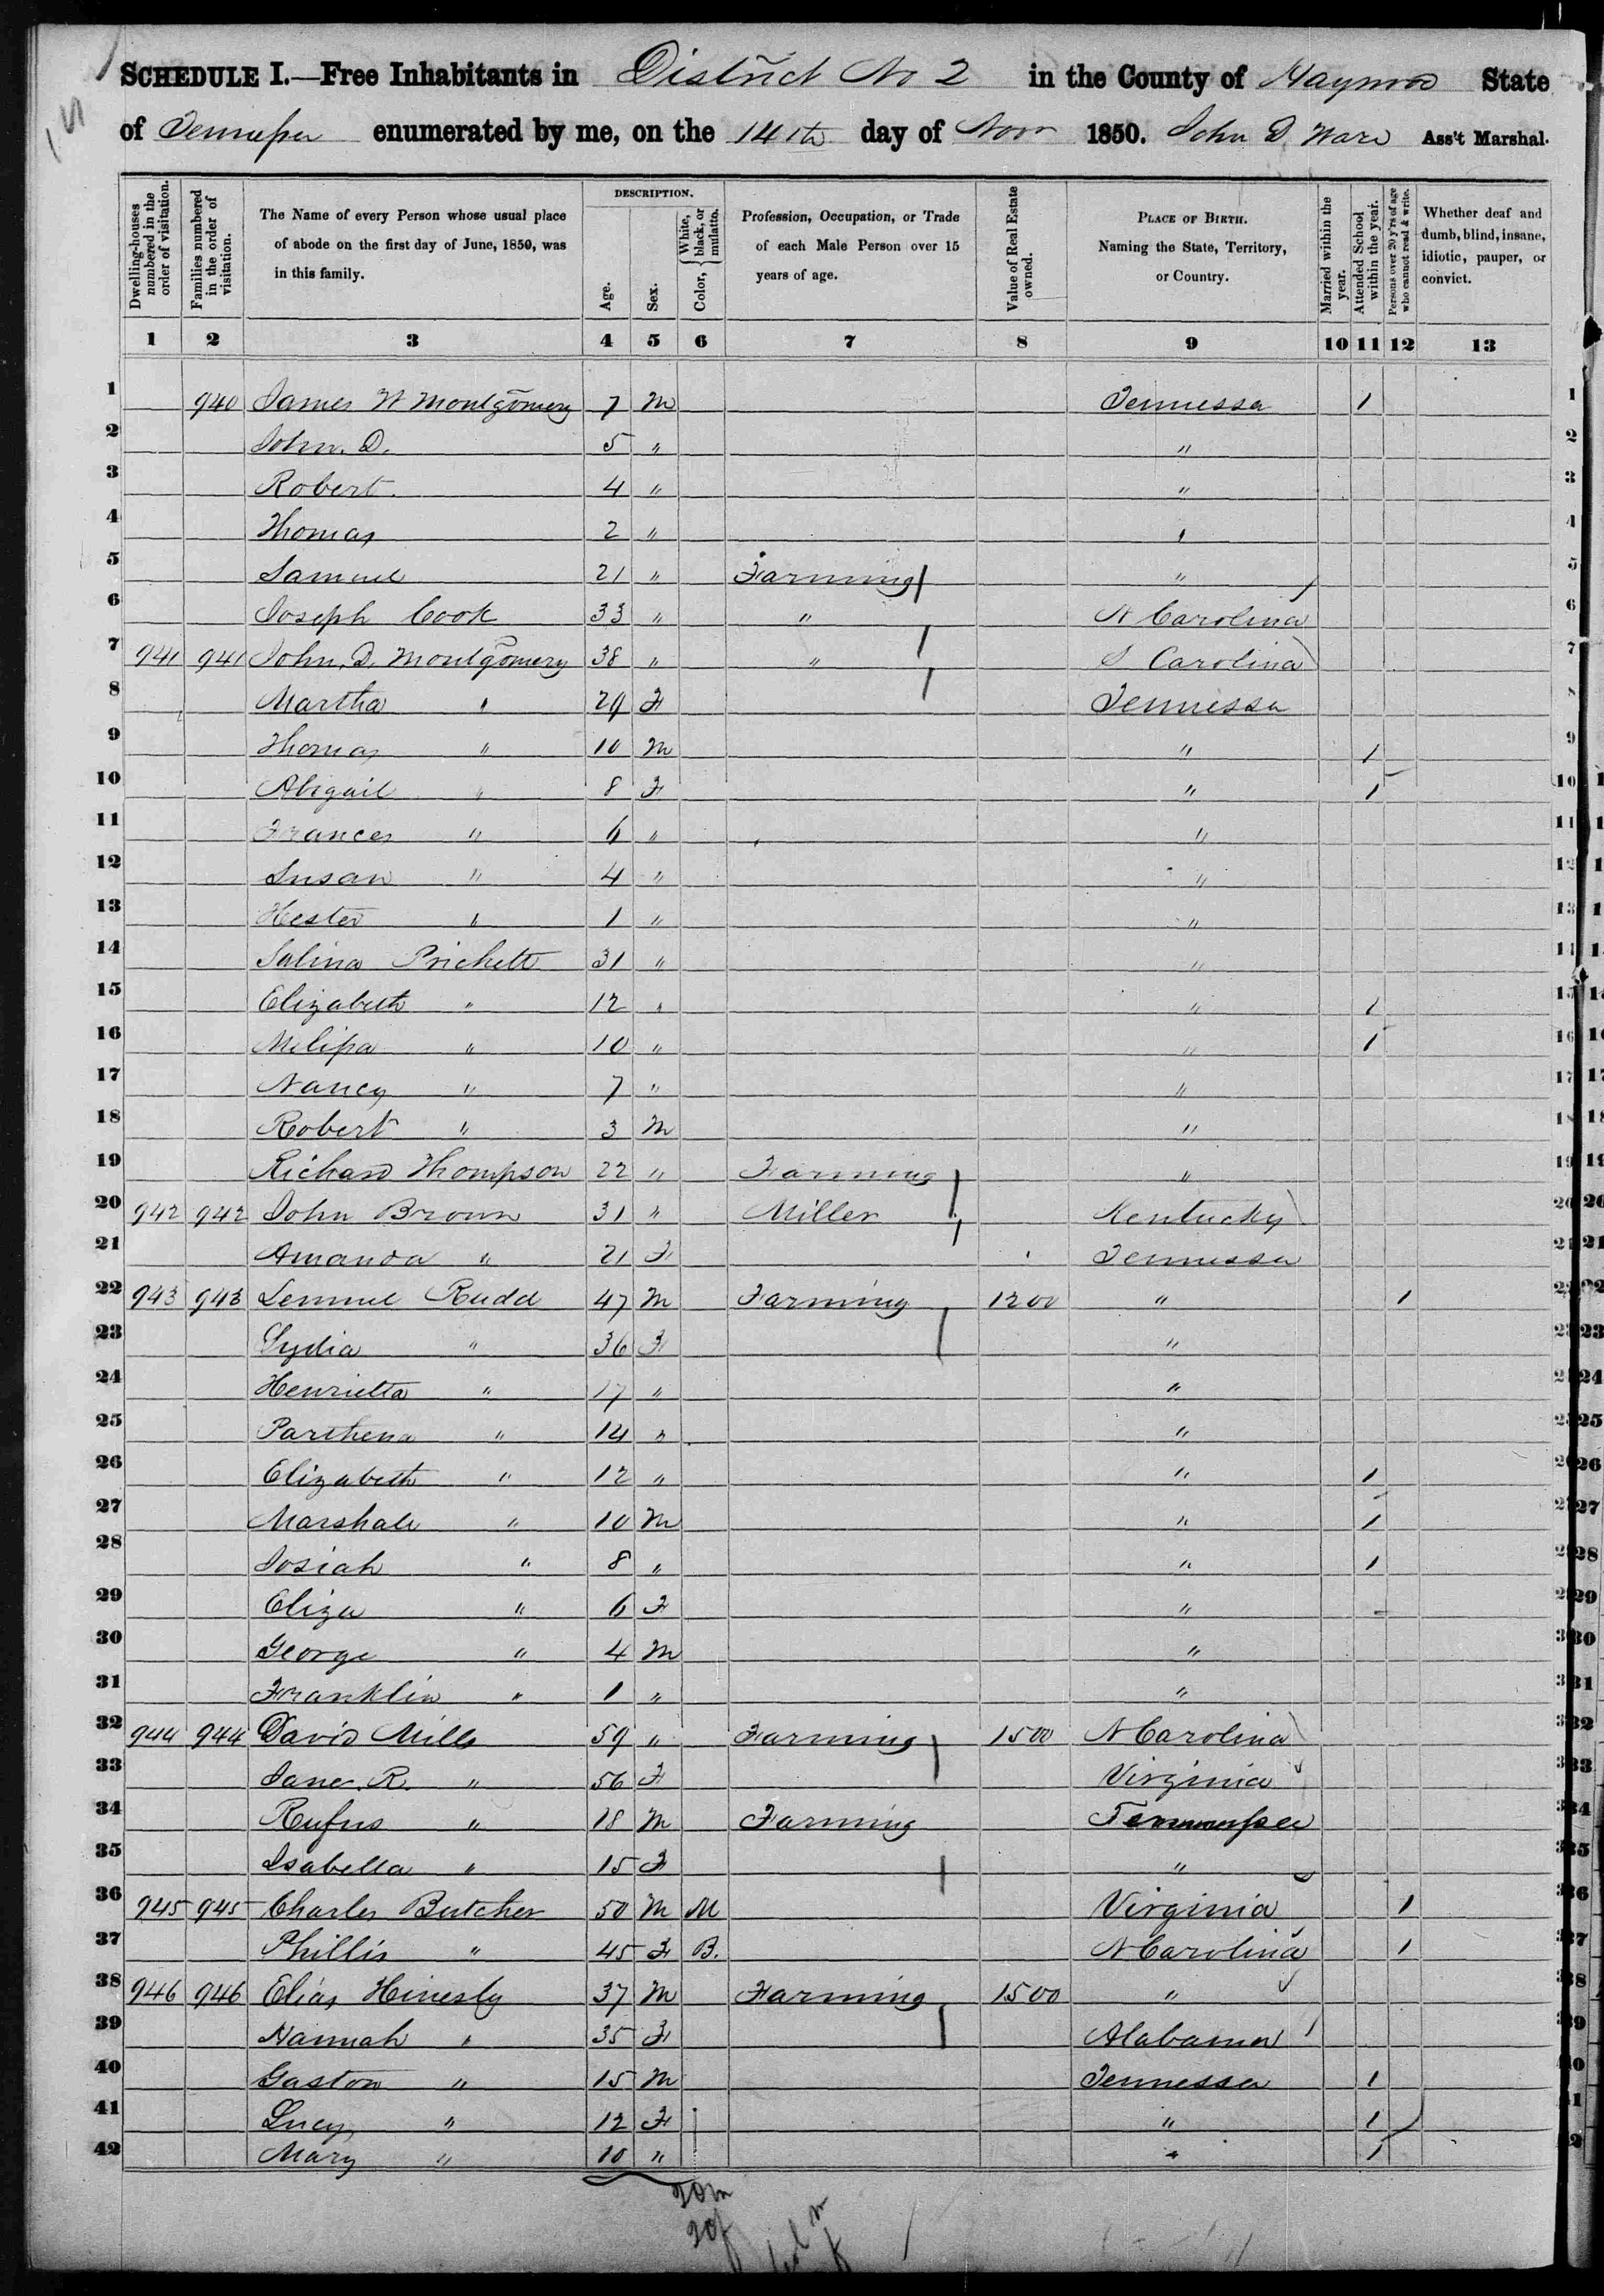 SCHEDULE I.—Free Inhabitants in District No 2 in the County of Haywood State
of Tennessee enumerated by me, on the 14th day of Nov 1850. John D. Ware Ass't Marshal.
Dwelling-houses numbered in the order of visitation. Families numbered in the order of visitation. The Name of every Person whose usual place of abode on the first day of June, 1850, was in this family. DESCRIPTION. Age. Sex. Color, { White, black, or mulatto. Profession, Occupation, or Trade of each Male Person over 15 years of age. Value of Real Estate owned. PLACE OF BIRTH. Naming the State, Territory, or Country. Married within the year. Attended School within the year. Persons over 20 y'rs of age who cannot read & write. Whether deaf and dumb, blind, insane, idiotic, pauper, or convict.
1 2 3 4 5 6 7 8 9 10 11 12 13
1 940 James W Montgomery 7 M Tennessee 1 1
2 John. D. 5 " " 2
3 Robert 4 " " 3
4 Thomas 2 " " 4
5 Samuel 21 " Farming " 5
6 Joseph Cook 33 " " N Carolina 6
7 941 941 John. D. Montgomery 38 " " S Carolina 7
8 Martha " 29 F Tennessee 8
9 Thomas " 10 M " 1 9
10 Abigail " 8 F " 1 10
11 Frances " 6 " " 11
12 Susan " 4 " " 12
13 Hester " 1 " " 13
14 Salina Prichett 31 " " 14
15 Elizabeth " 12 " " 1 15
16 Melissa " 10 " " 1 16
17 Nancy " 7 " " 17
18 Robert " 3 M " 18
19 Richard Thompson 22 " Farming " 19
20 942 942 John Brown 31 " Miller Kentucky 20
21 Amanda " 21 F Tennessee 21
22 943 943 Lemuel Rudd 47 M Farming 1200 " 1 22
23 Lydia " 36 F " 23
24 Henrietta " 17 " " 24
25 Parthena " 14 " " 25
26 Elizabeth " 12 " " 1 26
27 Marshall " 10 M " 1 27
28 Josiah " 8 " " 1 28
29 Eliza " 6 F " 29
30 George " 4 M " 30
31 Franklin " 1 " " 31
32 944 944 David Mills 59 " Farming 1500 N Carolina 32
33 Jane. R. " 56 F Virginia 33
34 Rufus " 18 M Farming Tennessee 34
35 Isabella " 15 F " 35
36 945 945 Charles Butcher 50 M M Virginia 1 36
37 Phillis " 45 F B. N Carolina 1 37
38 946 946 Elias Hinesly 37 M Farming 1500 " 38
39 Hannah " 35 F Alabama 39
40 Gaston " 15 M Tennessee 1 40
41 Lucy " 12 F " 1 41
42 Mary " 10 " " 1 42
20m
20f